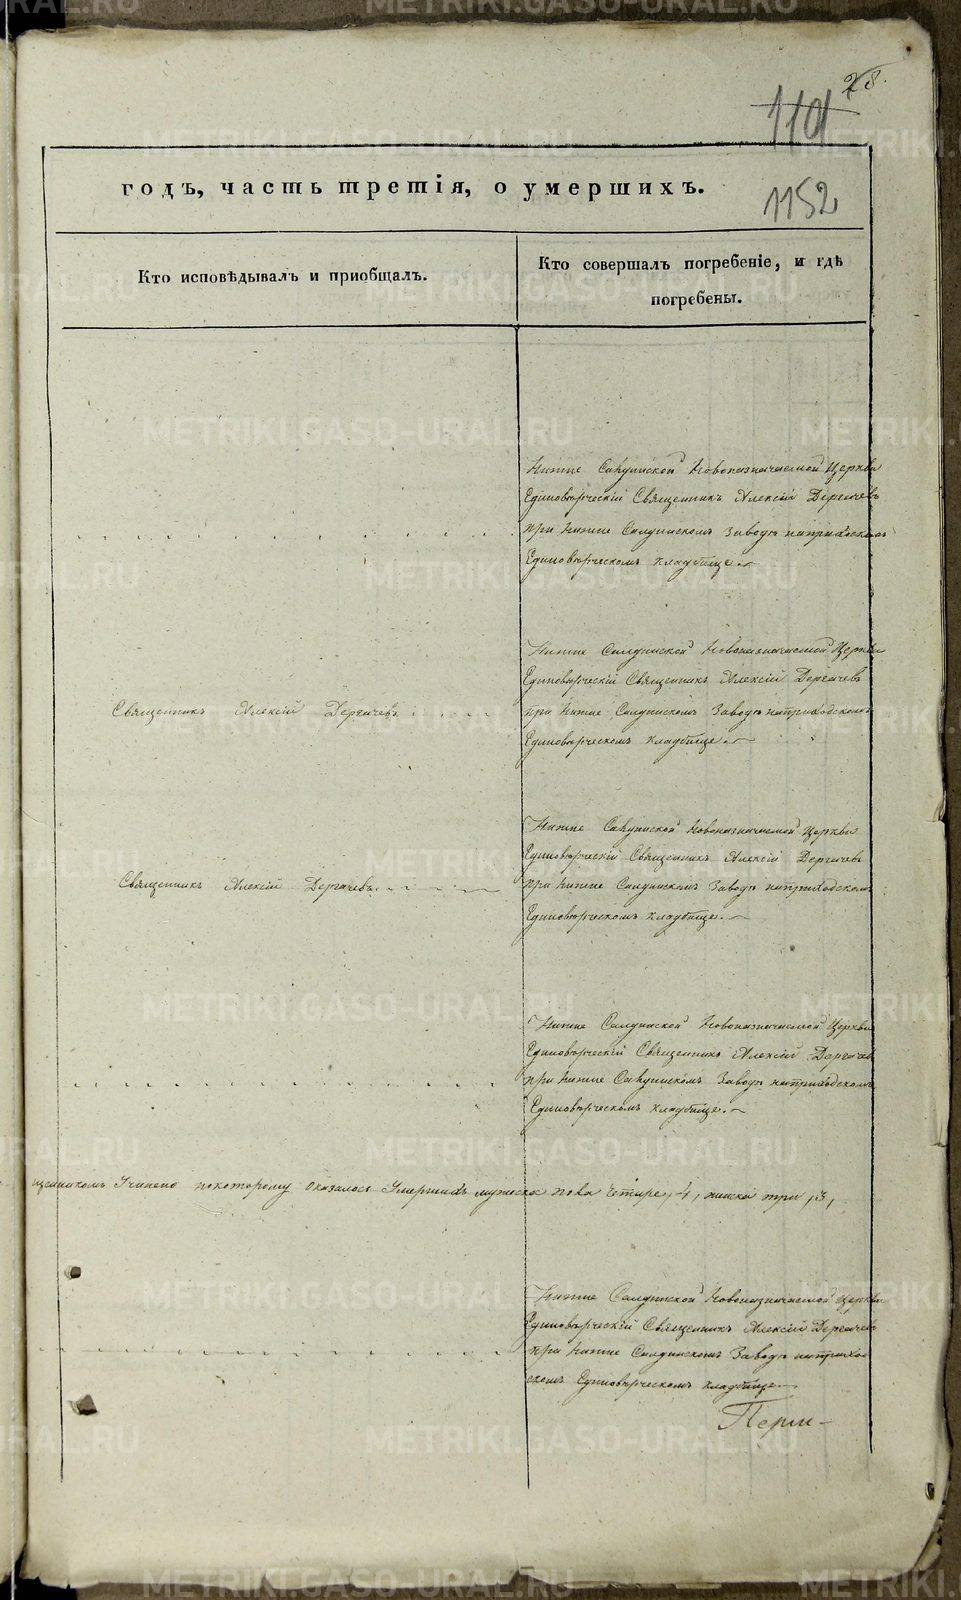 28.
1101
годъ, часть третія, о умершихъ.
1152
Кто исповѣдывалъ и приобщалъ.
Кто совершалъ погребеніе, и гдѣ
погребены.
Нижне Салдинской Новоназначаемой Церкви
Единовѣрческій Священникъ Алексій Дергачевъ
при Нижне Салдинскомъ Заводѣ на приходскомъ
Единовѣрческомъ кладбище.
Священникъ Алексій Дергачевъ.
Нижне Салдинской Новоназначаемой Церкви
Единовѣрческій Священникъ Алексій Дергачевъ
при Нижне Салдинскомъ Заводѣ на приходскомъ
Единовѣрческомъ кладбище.
Священникъ Алексій Дергачевъ.
Нижне Салдинской Новоназначаемой Церкви
Единовѣрческій Священникъ Алексій Дергачевъ
при Нижне Салдинскомъ Заводѣ на приходскомъ
Единовѣрческомъ кладбище.
Нижне Салдинской Новоназначаемой Церкви
Единовѣрческій Священникъ Алексій Дергачевъ
при Нижне Салдинскомъ Заводѣ на приходскомъ
Единовѣрческомъ кладбище.
щенникомъ Учинено по которому оказалось Умершихъ мужеска пола четыре, 4, женска три, 3,
Нижне Салдинской Новоназначаемой Церкви
Единовѣрческій Священникъ Алексій Дергачевъ
при Нижне Салдинскомъ Заводѣ на приход
скомъ Единовѣрческомъ кладбище.
METRIKI.GASO-URAL.RU